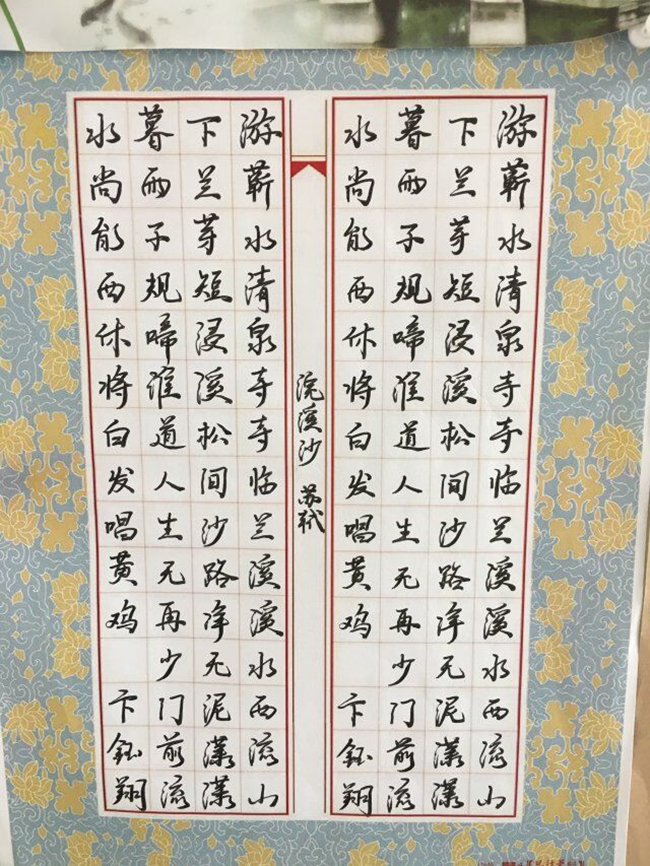 游蕲水清泉寺寺临兰溪溪水西流山
下兰芽短浸溪松间沙路净无泥潇潇
暮雨子规啼谁道人生无再少门前流
水尚能西休将白发唱黄鸡 卞钰翔
浣溪沙 苏轼
游蕲水清泉寺寺临兰溪溪水西流山
下兰芽短浸溪松间沙路净无泥潇潇
暮雨子规啼谁道人生无再少门前流
水尚能西休将白发唱黄鸡 卞钰翔